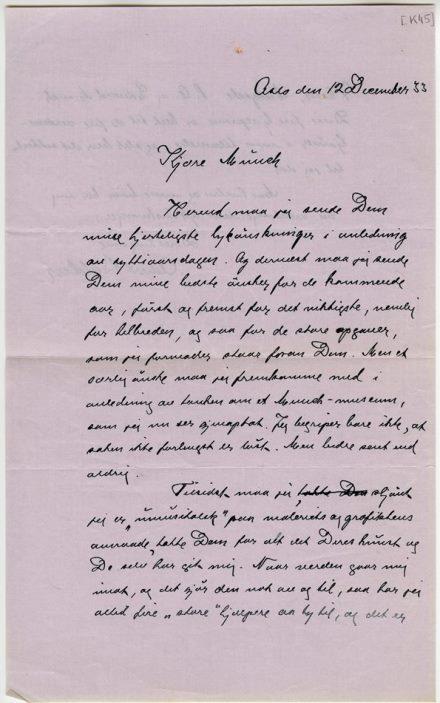 [K45]
Oslo den 12 December 33
Kjære Munch
Herved maa jeg sende Dem
mine hjerteligste lykønskninger i anledning
av syttiaarsdagen. Og dernæst maa jeg sende
Dem mine bedste ønsker for de kommende
aar, først og fremst for det viktigste, nemlig
for helbreden, og saa for de store opgaver,
som jeg formoder staar foran Dem. Men et
særlig ønske maa jeg fremkomme med i
anledning av tanken om et Munch-museum,
som jeg nu ser er optat. Jeg begriper bare ikke, at
saken ikke forlengst er løst. Men bedre sent end
aldrig.
Tilsidst maa jeg, takke Dem skjønt
jeg er „umusikalsk" paa maleriets og grafikkens
omraade, takke Dem for alt det Deres kunst og
De selv har git mig. Naar verden gaar mig
imot, og det gjør den nok av og til, saa har jeg
altid fire „store" hjælpere aa ty til, og det er